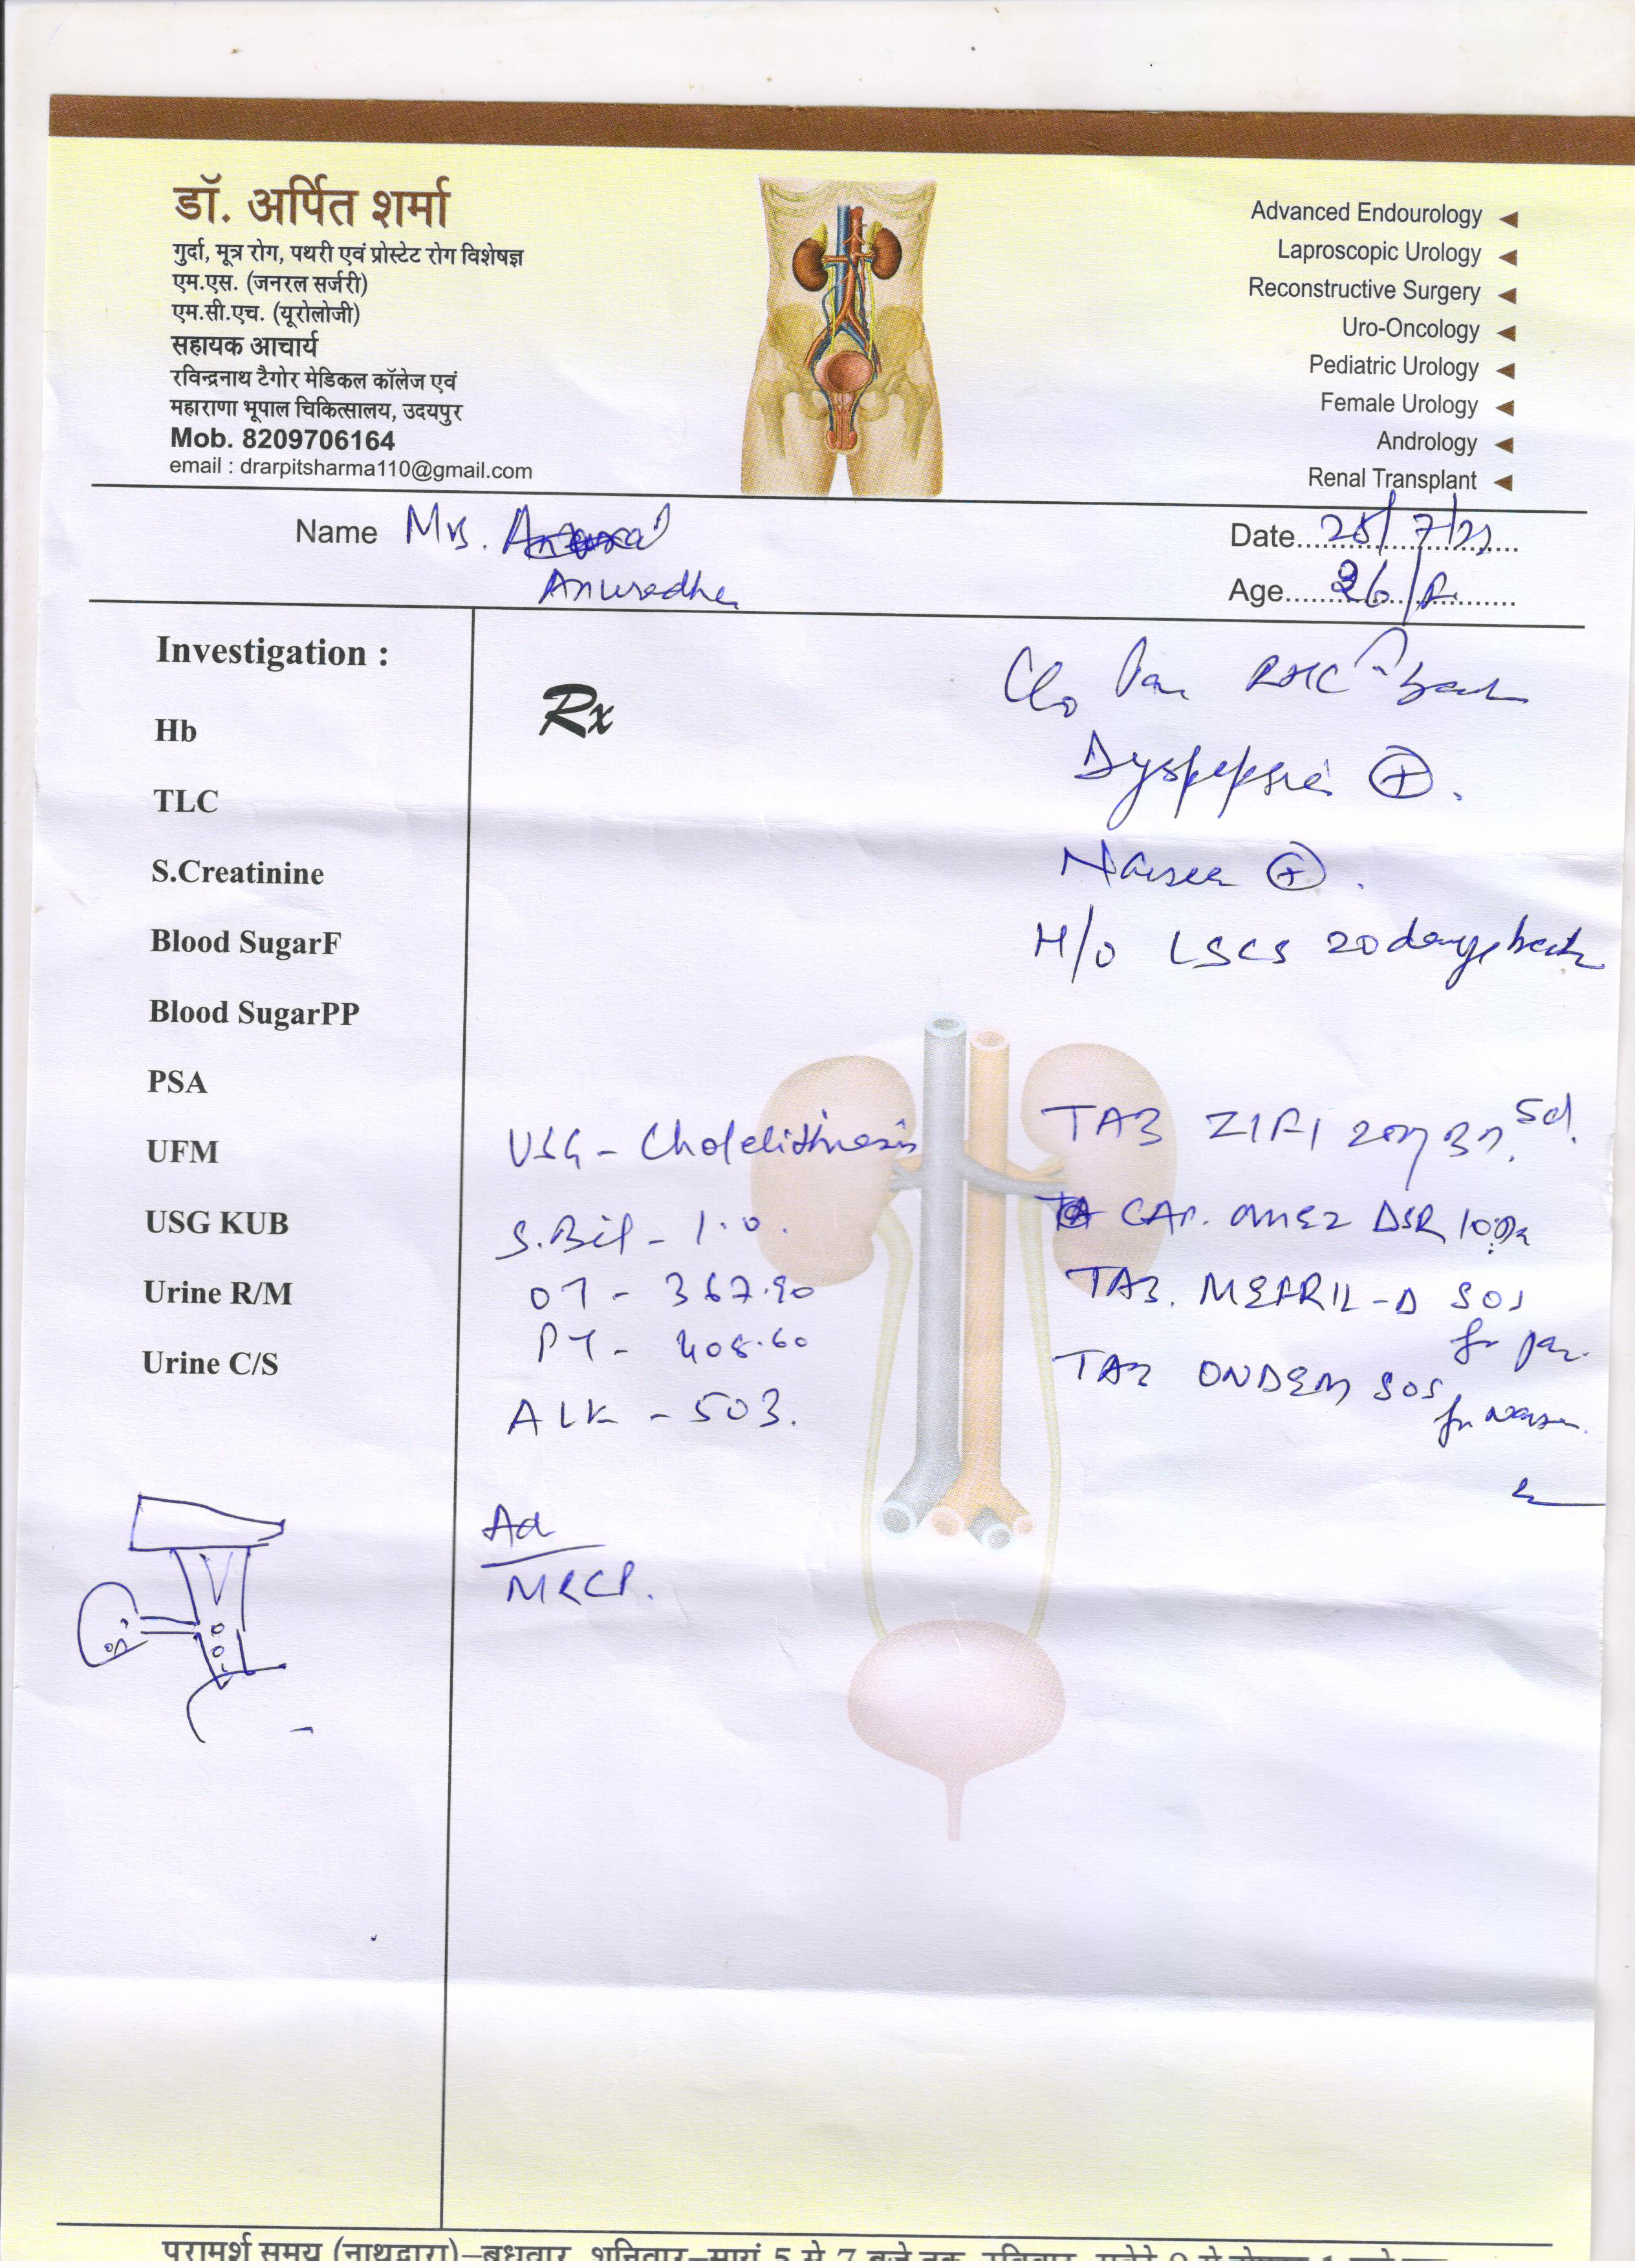 डॉ. अर्पित शर्मा
गुर्दा, मूत्र रोग, पथरी एवं प्रोस्टेट रोग विशेषज्ञ
एम.एस. (जनरल सर्जरी)
एम.सी.एच. (यूरोलोजी)
सहायक आचार्य
रविन्द्रनाथ टैगोर मेडिकल कॉलेज एवं
महाराणा भूपाल चिकित्सालय, उदयपुर
Mob. 8209706164
email : drarpitsharma110@gmail.com
Advanced Endourology
Laproscopic Urology
Reconstructive Surgery
Uro-Oncology
Pediatric Urology
Female Urology
Andrology
Renal Transplant
Name Mrs.
Anuradha
Date
Age
Investigation :
Hb
TLC
S.Creatinine
Blood SugarF
Blood SugarPP
PSA
UFM
USG KUB
Urine R/M
Urine C/S
Rx
C/o Pain
Dyspepsia +.
Nausea +.
H/o LSCS 20 days back
USG - Cholelithiasis
S.Bil - 1.0.
OT - 367.90
PT - 408.60
ALK - 503.
Ad
MRCP.
TAB ZIFI 5d.
CAP. OMEZ DSR
TAB. MEFRIL-D SOS
for pain
TAB ONDEM SOS
for nausea
परामर्श समय (नाथद्वारा)–बुधवार, शनिवार–सायं 5 से 7 बजे तक,